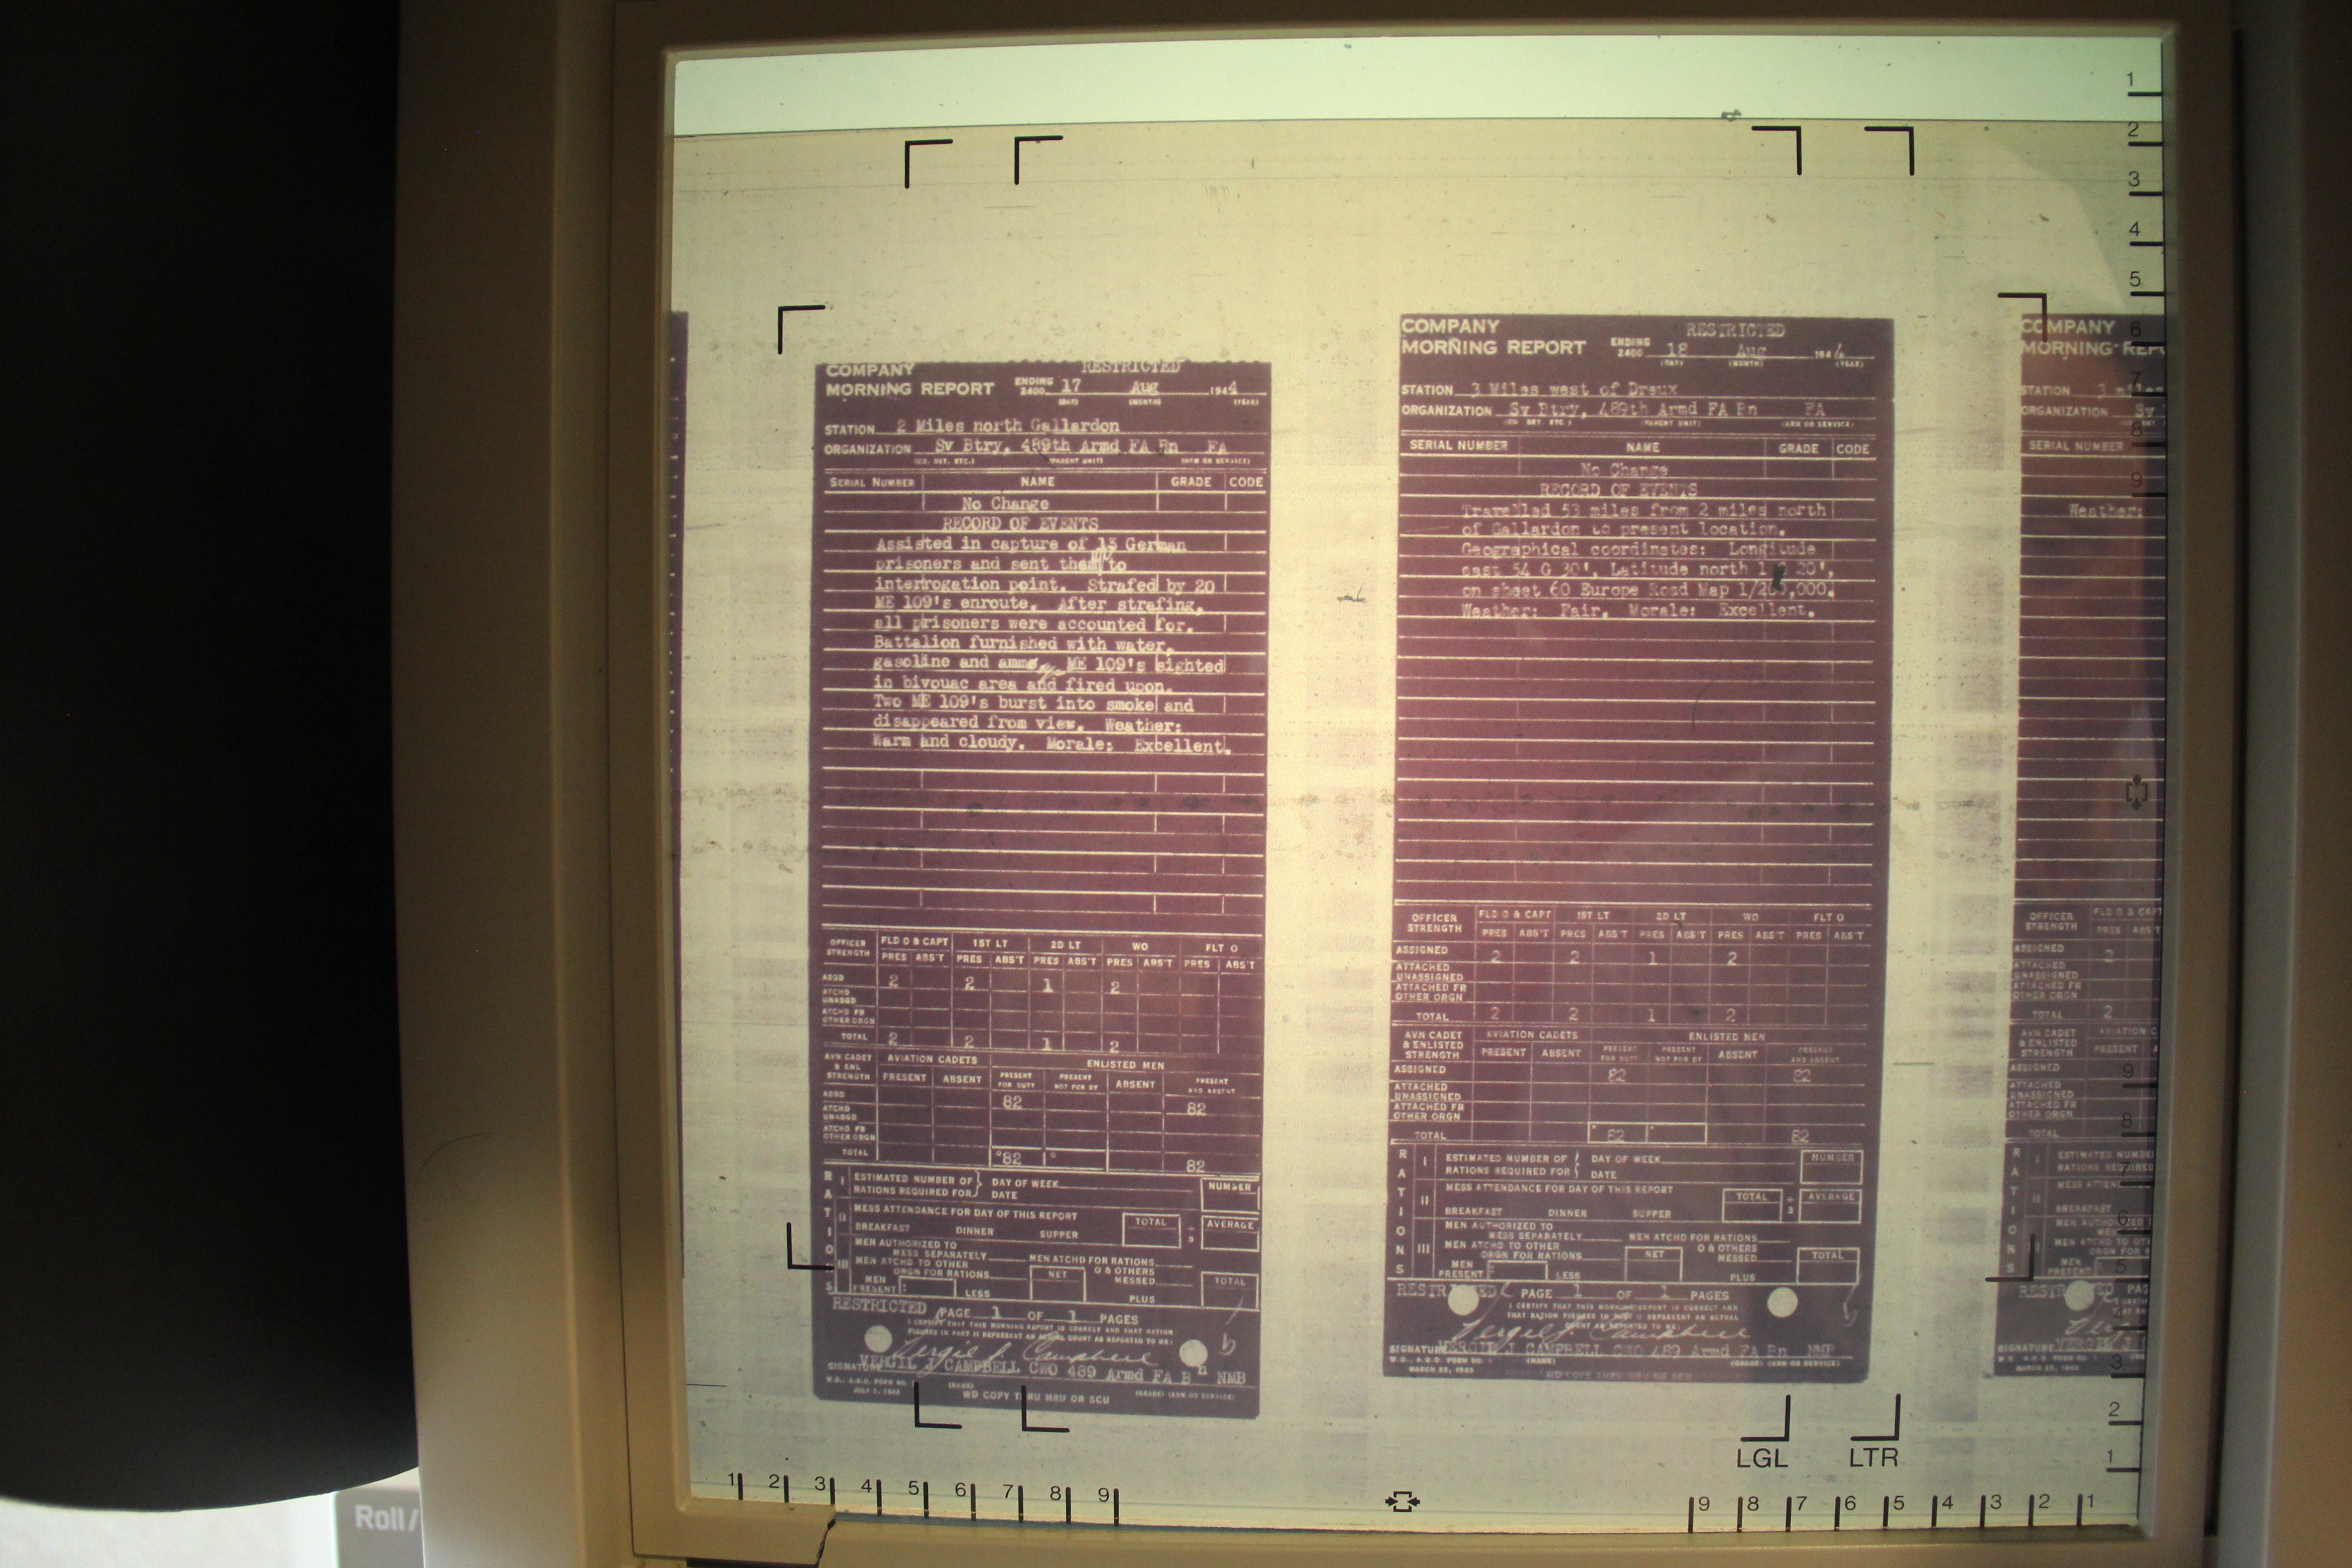 COMPANY RESTRICTED
MORNING REPORT ENDING 2400 17 Aug 1944
(DAY) (MONTH) (YEAR)
STATION 2 Miles north Gallardon
ORGANIZATION Sv Btry, 489th Armd FA Bn FA
(CO. DET. ETC.) (PARENT UNIT) (ARM OR SERVICE)
SERIAL NUMBER NAME GRADE CODE
No Change
RECORD OF EVENTS
Assisted in capture of 13 German
prisoners and sent them to
interrogation point. Strafed by 20
ME 109's enroute. After strafing,
all prisoners were accounted for.
Battalion furnished with water,
gasoline and ammo. ME 109's sighted
in bivouac area and fired upon.
Two ME 109's burst into smoke and
disappeared from view. Weather:
Warm and cloudy. Morale: Excellent.
OFFICER STRENGTH FLD O & CAPT 1ST LT 2D LT WO FLT O
PRES ABS'T PRES ABS'T PRES ABS'T PRES ABS'T PRES ABS'T
ASGD 2 2 1 2
ATCHD UNASGD
ATCHD FR OTHER ORGN
TOTAL 2 2 1 2
AVN CADET & ENL STRENGTH AVIATION CADETS ENLISTED MEN
PRESENT ABSENT PRESENT FOR DUTY PRESENT NOT FOR DY ABSENT PRESENT AND ABSENT
ASGD 82 82
ATCHD UNASGD
ATCHD FR OTHER ORGN
TOTAL 82 82
RATIONS
I ESTIMATED NUMBER OF RATIONS REQUIRED FOR DAY OF WEEK DATE NUMBER
II MESS ATTENDANCE FOR DAY OF THIS REPORT
BREAKFAST DINNER SUPPER TOTAL ÷ 3 AVERAGE
III MEN AUTHORIZED TO MESS SEPARATELY MEN ATCHD FOR RATIONS
MEN ATCHD TO OTHER ORGN FOR RATIONS NET O & OTHERS MESSED
MEN PRESENT: LESS PLUS TOTAL
RESTRICTED PAGE 1 OF 1 PAGES
I CERTIFY THAT THIS MORNING REPORT IS CORRECT AND THAT RATION
FIGURES IN PART II REPRESENT AN ACTUAL COUNT AS REPORTED TO ME:
Vergil J. Campbell
SIGNATURE VERGIL J CAMPBELL CWO 489 Armd FA Bn NMB
W.D., A.G.O. FORM NO. 1 (NAME) (GRADE) (ARM OR SERVICE)
JULY 1, 1943 WD COPY THRU MRU OR SCU
COMPANY RESTRICTED
MORNING REPORT ENDING 2400 18 Aug 1944
(DAY) (MONTH) (YEAR)
STATION 3 Miles west of Dreux
ORGANIZATION Sv Btry, 489th Armd FA Bn FA
(CO. DET. ETC.) (PARENT UNIT) (ARM OR SERVICE)
SERIAL NUMBER NAME GRADE CODE
No Change
RECORD OF EVENTS
Travelled 53 miles from 2 miles north
of Gallardon to present location.
Geographical coordinates: Longitude
east 54 G 30', Latitude north 1 20',
on sheet 60 Europe Road Map 1/200,000.
Weather: Fair. Morale: Excellent.
OFFICER STRENGTH FLD O & CAPT 1ST LT 2D LT WO FLT O
PRES ABS'T PRES ABS'T PRES ABS'T PRES ABS'T PRES ABS'T
ASSIGNED 2 2 1 2
ATTACHED UNASSIGNED
ATTACHED FR OTHER ORGN
TOTAL 2 2 1 2
AVN CADET & ENLISTED STRENGTH AVIATION CADETS ENLISTED MEN
PRESENT ABSENT PRESENT FOR DUTY PRESENT NOT FOR DY ABSENT PRESENT AND ABSENT
ASSIGNED 82 82
ATTACHED UNASSIGNED
ATTACHED FR OTHER ORGN
TOTAL 82 82
RATIONS
I ESTIMATED NUMBER OF RATIONS REQUIRED FOR DAY OF WEEK DATE NUMBER
II MESS ATTENDANCE FOR DAY OF THIS REPORT
BREAKFAST DINNER SUPPER TOTAL ÷ 3 AVERAGE
III MEN AUTHORIZED TO MESS SEPARATELY MEN ATCHD FOR RATIONS
MEN ATCHD TO OTHER ORGN FOR RATIONS NET O & OTHERS MESSED
MEN PRESENT: LESS PLUS TOTAL
RESTRICTED PAGE 1 OF 1 PAGES
I CERTIFY THAT THIS MORNING REPORT IS CORRECT AND
THAT RATION FIGURES IN PART II REPRESENT AN ACTUAL
COUNT AS REPORTED TO ME:
Vergil J. Campbell
SIGNATURE VERGIL J CAMPBELL CWO 489 Armd FA Bn NMB
W.D., A.G.O. FORM NO. 1 (NAME) (GRADE) (ARM OR SERVICE)
MARCH 25, 1943 WD COPY THRU MRU OR SCU
COMPANY
MORNING REP
STATION 3 miles
ORGANIZATION Sv
SERIAL NUMBER
Weather:
OFFICER STRENGTH FLD O & CAPT
PRES ABS'T
ASSIGNED 2
ATTACHED UNASSIGNED
ATTACHED FR OTHER ORGN
TOTAL 2
AVN CADET & ENLISTED STRENGTH AVIATION C
PRESENT
ASSIGNED
ATTACHED UNASSIGNED
ATTACHED FR OTHER ORGN
TOTAL
RATIONS
ESTIMATED NUMBE
RATIONS REQUIRED
MESS ATTEND
BREAKFAST
MEN AUTHORIZED T
MEN ATCHD TO OTH
MEN PRESENT
RESTRICTED PAG
SIGNATURE VERGIL J
MARCH 25, 1943
1
2
3
4
5
6
7
8
9
9
8
7
6
5
3
2
1
LGL LTR
1 2 3 4 5 6 7 8 9 9 8 7 6 5 4 3 2 1
Roll/